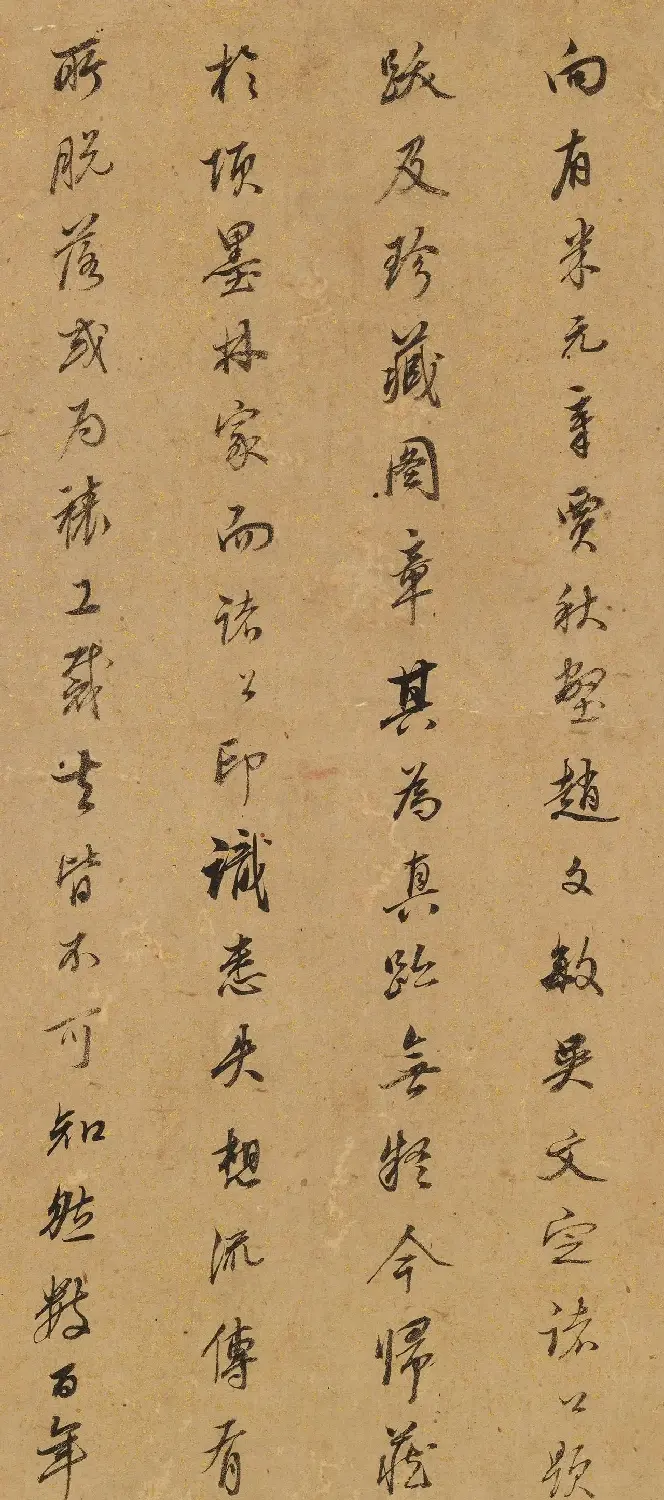 向有米元章賈秋壑趙文敏吳文定諸公題
跋及珍藏圖章其為真跡無疑今歸藏
於項墨林家而諸公印識悉失想流傳有
所脫落或為裱工裁去皆不可知然數百年